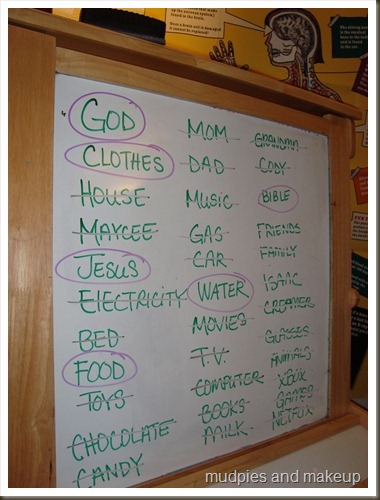 GOD
CLOTHES
HOUSE
MAYCEE
JESUS
ELECTRICITY
BED
FOOD
TOYS
CHOCOLATE
CANDY
MOM
DAD
MUSIC
GAS
CAR
WATER
MOVIES
T.V.
COMPUTER
BOOKS
MILK
GRANDMA
CODY
BIBLE
FRIENDS
FAMILY
ISAAC
CREAMER
GLASSES
ANIMALS
XBOX
GAMES
NETFLIX
mudpies and makeup